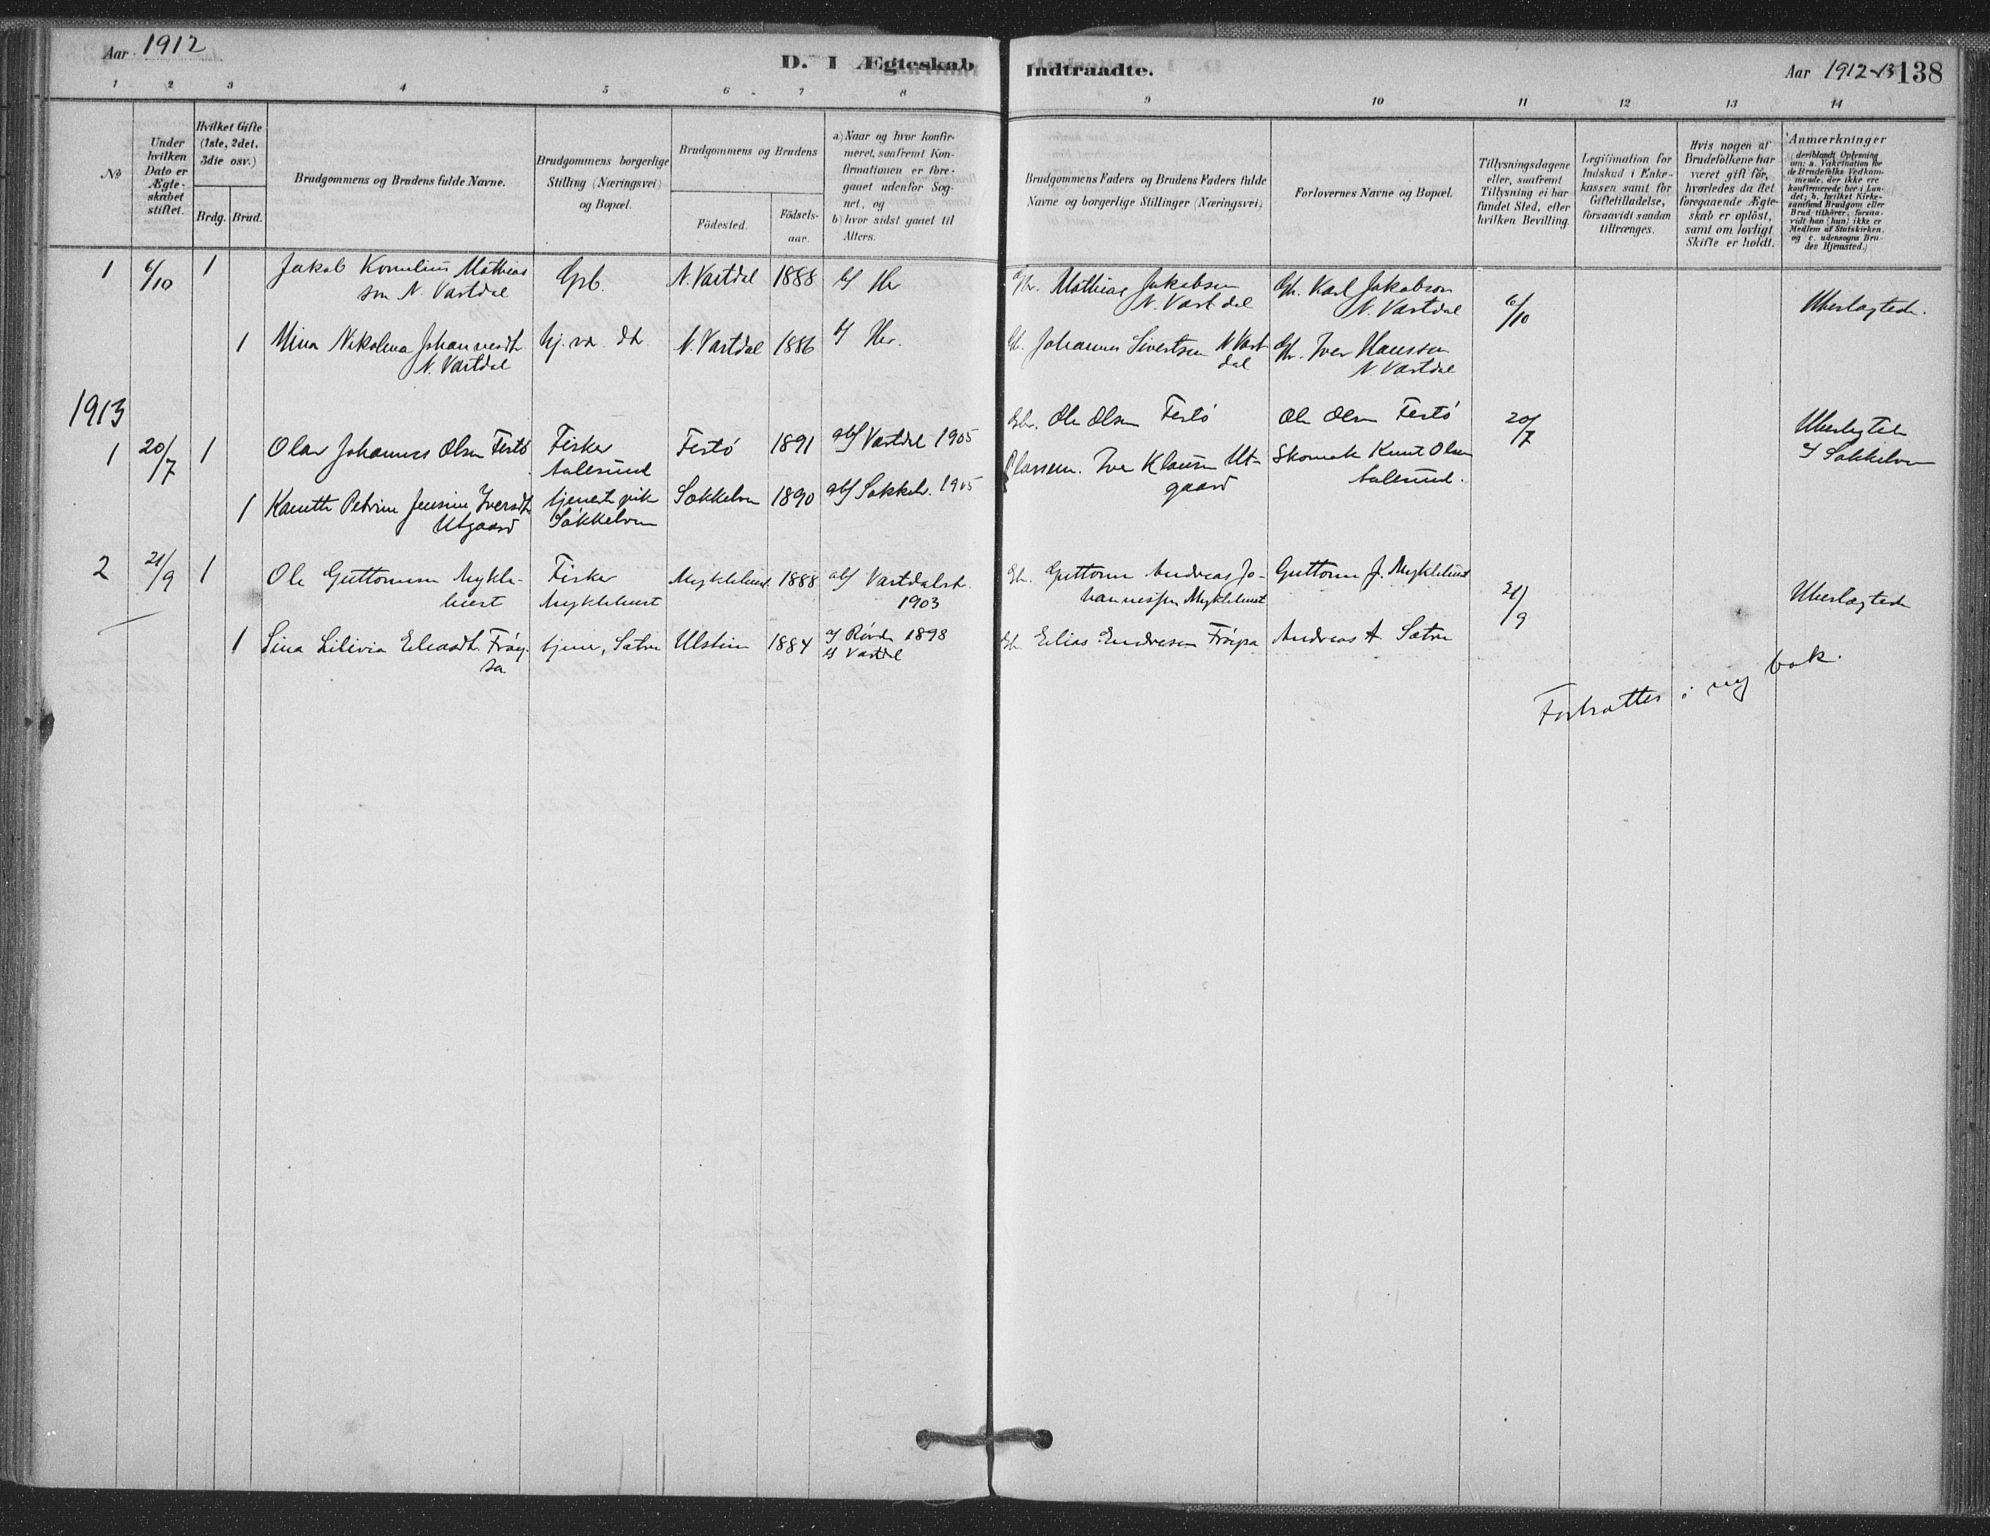 Aar 1912
D. I Ægteskab
Indtraadte.
Aar 1912-13
138
1 2 3 4 5 6 7 8 9 10 11 12 13 14
No
Under hvilken Dato er Ægteskabet stiftet.
Hvilket Gifte (1ste, 2det, 3die osv.)
Brdg. Brud.
Brudgommens og Brudens fulde Navne.
Brudgommens borgerlige Stilling (Næringsvei) og Bopæl.
Brudgommens og Brudens
Födested. Födsels-aar.
a) Naar og hvor konfirmeret, saafremt Konfirmationen er foregaaet udenfor Sognet, og
b) hvor sidst gaaet til Alters.
Brudgommens Faders og Brudens Faders fulde Navne og borgerlige Stillinger (Næringsvei)
Forlovernes Navne og Bopæl.
Tillysningsdagene eller, saafremt Tillysning ei har fundet Sted, efter hvilken Bevilling.
Legitimation for Indskud i Enkekassen samt for Giftetilladelse, forsaavidt saadan tiltrænges.
Hvis nogen af Brudefolkene har været gift før, hvorledes da det foregaaende Ægteskab er oplöst, samt om lovligt Skifte er holdt.
Anmærkninger (deriblandt Oplysning om: a. Vakcination for de Brudefolks Vedkommende, der ikke ere konfirmerede her i Landet; b. hvilket Kirkesamfund Brudgom eller Brud tilhörer, forsaavidt han (hun) ikke er Medlem af Statskirken, og c. udensogns Brudes Hjemsted.)
1 6/10 1 Jakob Kornelius Mathias
son N. Vartdal
Gpb. N. Vartdal 1888 Her
Mathias Jakobsen
N. Vartdal
Gbr. Karl Jakobson
N. Vartdal
6/10
Ubeslægtede.
1 Mina Nikolina Johannesdtr
N. Vartdal
Hj. vær. dtr N. Vartdal 1886 Her.
Johannes Sivertsen N. Vart
dal
Gbr. Iver Hanssen
N. Vartdal
1913
1 20/7 1 Olav Johannes Olsen Festö
Fisker
Aalesund
Festö 1891 Vartdal 1905
Gbr. Ole Olsen Festö
Ole Olsen Festö
20/7
Ubeslegtede
Søkkelven
1 Kanutte Petrine Jensine Iversdtr
Utgaard
tjenestepike
Søkkelven
Søkkelven 1890 Søkkelv. 1905
Iver Klausen Ut-
gaard
Skomak Knut Olsen
Aalesund.
2 21/9 1 Ole Guttormsen Mykle-
bust
Fisker
Myklebust
Myklebust 1888 Vartdalstr.
1903
Gbr. Guttorm Andreas Jo-
hannessen Myklebust
Guttorm J. Myklebust
21/9
Ubeslegtede
1 Sina Lilivia Eliasdtr Frøy-
sa
tjener, Sætre Ulstein 1884 Røvde 1898
Vartdal
Gbr. Elias Endresen Frøysa
Andreas A Sætre
Fortsættes i ny bok.